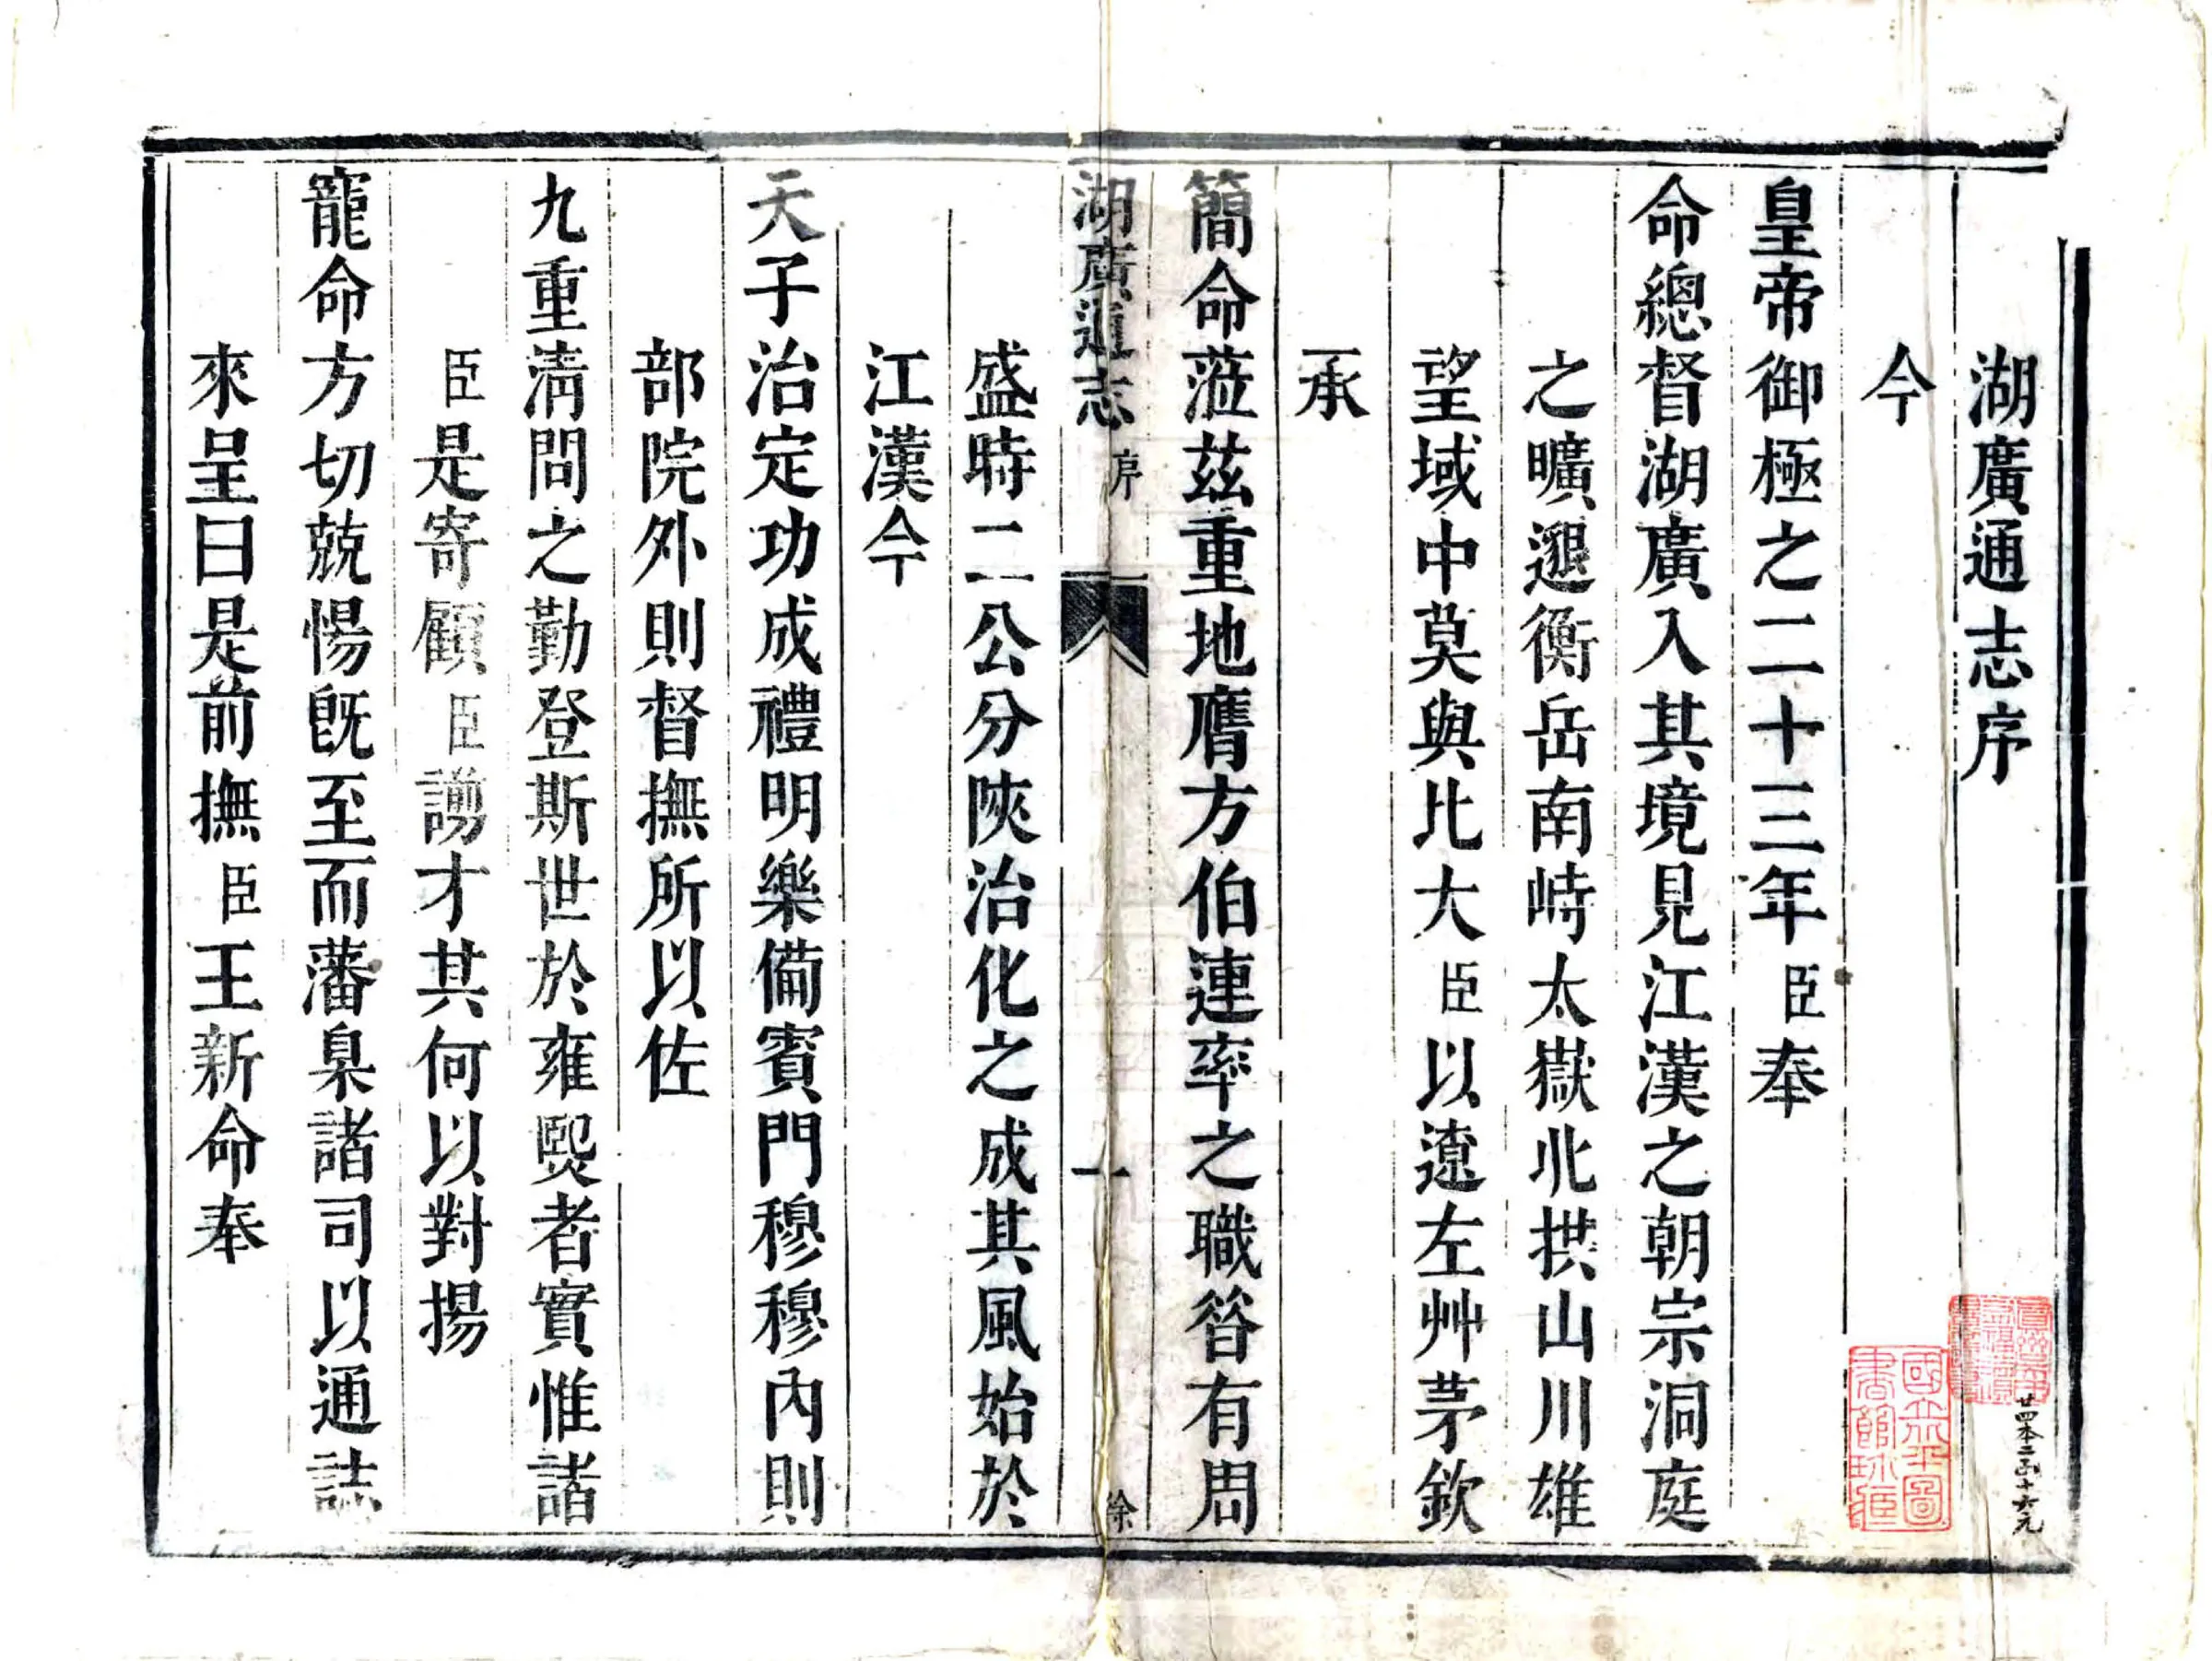 湖廣通志序
今
皇帝御極之二十三年臣奉
命總督湖廣入其境見江漢之朝宗洞庭
之曠邈衡岳南峙太嶽北拱山川雄
望域中莫與比大臣以遼左艸茅欽
承
簡命蒞茲重地膺方伯連率之職昝有周
湖廣通志 序 一 徐
盛時二公分陝治化之成其風始於
江漢今
天子治定功成禮明樂備賓門穆穆內則
部院外則督撫所以佐
九重清問之勤登斯世於雍熙者實惟諸
臣是寄顧臣謭才其何以對揚
寵命方切兢惕旣至而藩臬諸司以通誌
來呈曰是前撫臣王新命奉
國立北平圖書館珍藏
廿四本二函十六元